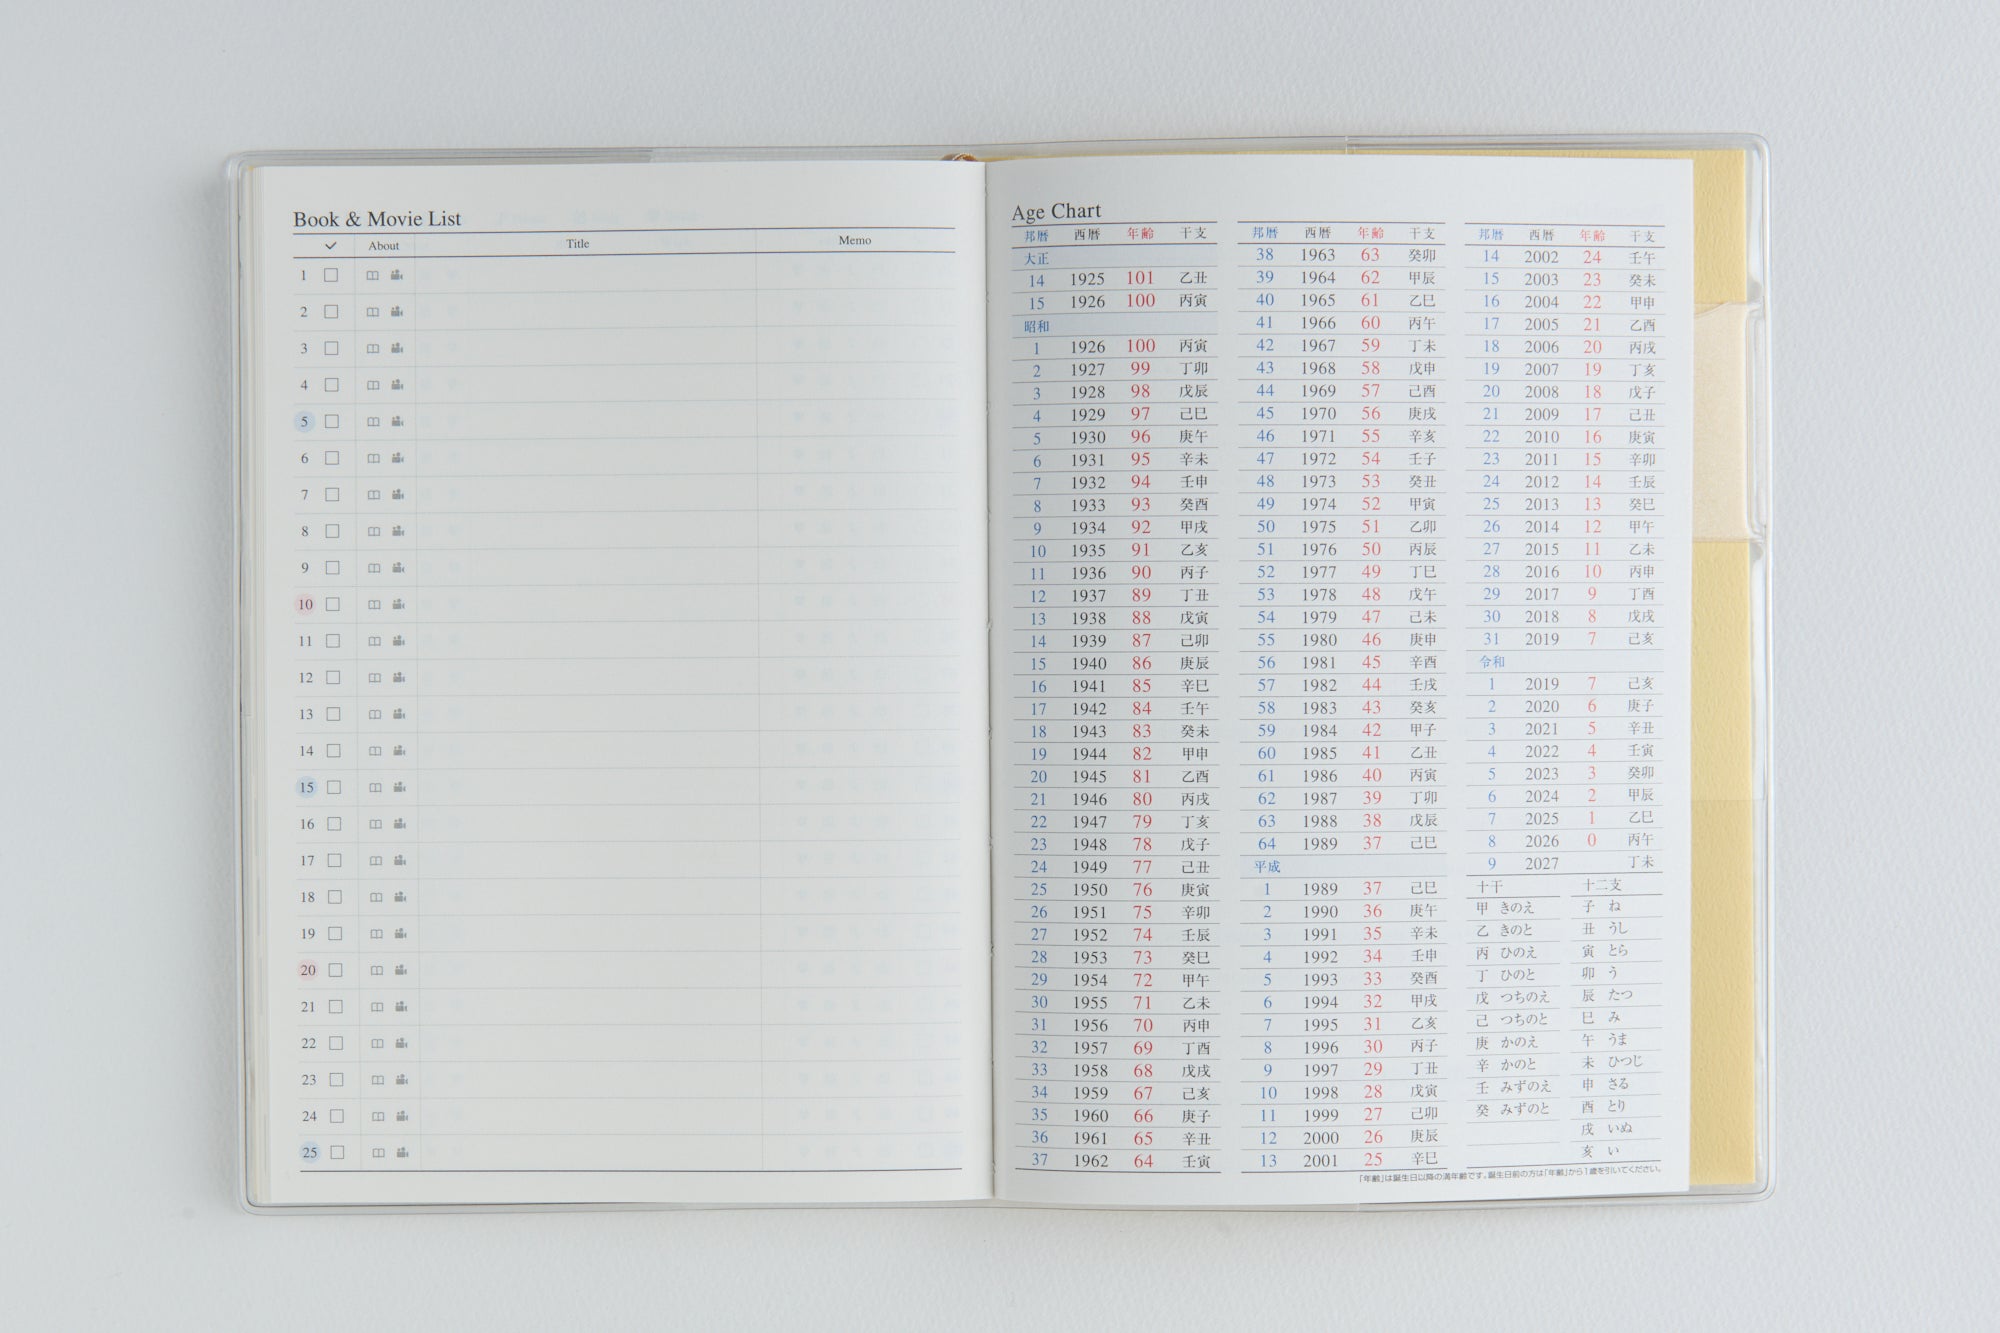 Book & Movie List
✓ About Title Memo
1
2
3
4
5
6
7
8
9
10
11
12
13
14
15
16
17
18
19
20
21
22
23
24
25
Age Chart
邦暦 西暦 年齢 干支
大正
14 1925 101 乙丑
15 1926 100 丙寅
昭和
1 1926 100 丙寅
2 1927 99 丁卯
3 1928 98 戊辰
4 1929 97 己巳
5 1930 96 庚午
6 1931 95 辛未
7 1932 94 壬申
8 1933 93 癸酉
9 1934 92 甲戌
10 1935 91 乙亥
11 1936 90 丙子
12 1937 89 丁丑
13 1938 88 戊寅
14 1939 87 己卯
15 1940 86 庚辰
16 1941 85 辛巳
17 1942 84 壬午
18 1943 83 癸未
19 1944 82 甲申
20 1945 81 乙酉
21 1946 80 丙戌
22 1947 79 丁亥
23 1948 78 戊子
24 1949 77 己丑
25 1950 76 庚寅
26 1951 75 辛卯
27 1952 74 壬辰
28 1953 73 癸巳
29 1954 72 甲午
30 1955 71 乙未
31 1956 70 丙申
32 1957 69 丁酉
33 1958 68 戊戌
34 1959 67 己亥
35 1960 66 庚子
36 1961 65 辛丑
37 1962 64 壬寅
邦暦 西暦 年齢 干支
38 1963 63 癸卯
39 1964 62 甲辰
40 1965 61 乙巳
41 1966 60 丙午
42 1967 59 丁未
43 1968 58 戊申
44 1969 57 己酉
45 1970 56 庚戌
46 1971 55 辛亥
47 1972 54 壬子
48 1973 53 癸丑
49 1974 52 甲寅
50 1975 51 乙卯
51 1976 50 丙辰
52 1977 49 丁巳
53 1978 48 戊午
54 1979 47 己未
55 1980 46 庚申
56 1981 45 辛酉
57 1982 44 壬戌
58 1983 43 癸亥
59 1984 42 甲子
60 1985 41 乙丑
61 1986 40 丙寅
62 1987 39 丁卯
63 1988 38 戊辰
64 1989 37 己巳
平成
1 1989 37 己巳
2 1990 36 庚午
3 1991 35 辛未
4 1992 34 壬申
5 1993 33 癸酉
6 1994 32 甲戌
7 1995 31 乙亥
8 1996 30 丙子
9 1997 29 丁丑
10 1998 28 戊寅
11 1999 27 己卯
12 2000 26 庚辰
13 2001 25 辛巳
邦暦 西暦 年齢 干支
14 2002 24 壬午
15 2003 23 癸未
16 2004 22 甲申
17 2005 21 乙酉
18 2006 20 丙戌
19 2007 19 丁亥
20 2008 18 戊子
21 2009 17 己丑
22 2010 16 庚寅
23 2011 15 辛卯
24 2012 14 壬辰
25 2013 13 癸巳
26 2014 12 甲午
27 2015 11 乙未
28 2016 10 丙申
29 2017 9 丁酉
30 2018 8 戊戌
31 2019 7 己亥
令和
1 2019 7 己亥
2 2020 6 庚子
3 2021 5 辛丑
4 2022 4 壬寅
5 2023 3 癸卯
6 2024 2 甲辰
7 2025 1 乙巳
8 2026 0 丙午
9 2027 丁未
十干
甲 きのえ
乙 きのと
丙 ひのえ
丁 ひのと
戊 つちのえ
己 つちのと
庚 かのえ
辛 かのと
壬 みずのえ
癸 みずのと
十二支
子 ね
丑 うし
寅 とら
卯 う
辰 たつ
巳 み
午 うま
未 ひつじ
申 さる
酉 とり
戌 いぬ
亥 い
「年齢」は誕生日以降の満年齢です。誕生日前の方は「年齢」から1歳を引いてください。